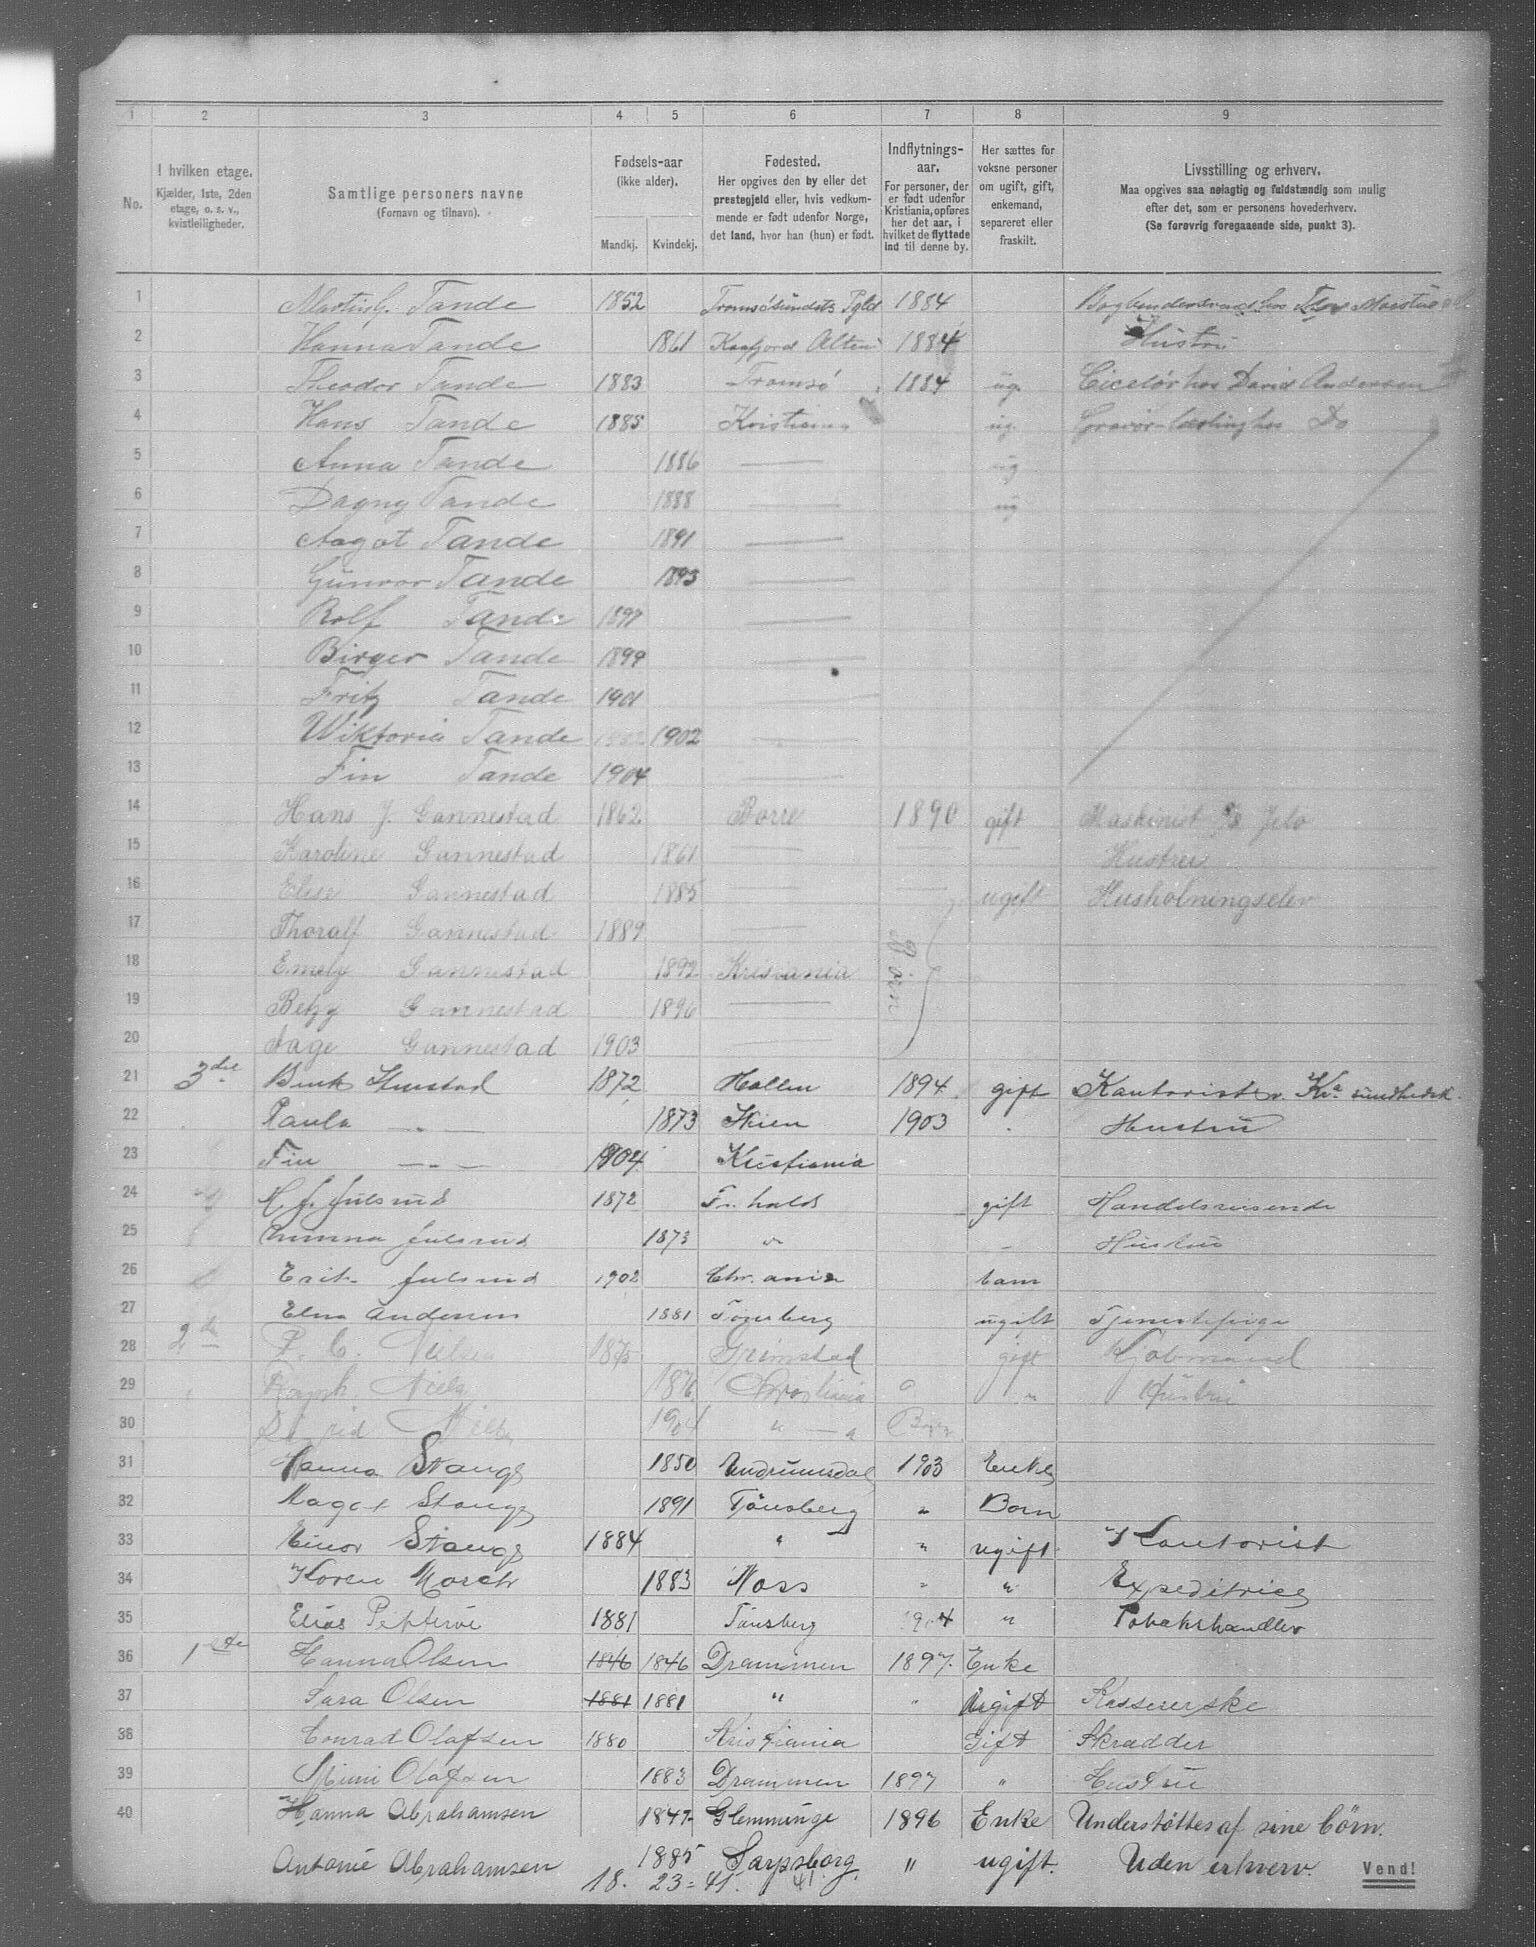 1 2 3 4 5 6 7 8 9
No. I hvilken etage. Kjælder, 1ste, 2den etage, o. s. v., kvistleiligheder. Samtlige personers navne (Fornavn og tilnavn). Fødsels-aar (ikke alder). Mandkj. Kvindekj. Fødested. Her opgives den by eller det prestegjeld eller, hvis vedkommende er født udenfor Norge, det land, hvor han (hun) er født. Indflytnings-aar. For personer, der er født udenfor Kristiania, opføres her det aar, i hvilket de flyttede ind til denne by. Her sættes for voksne personer om ugift, gift, enkemand, separeret eller fraskilt. Livsstilling og erhverv. Maa opgives saa nøiagtig og fuldstændig som mulig efter det, som er personens hovederhverv. (Se forøvrig foregaaende side, punkt 3).
1 Martin G. Tande 1852 Tromsøsundets Pgld 1884
2 Hanna Tande 1861 Kaafjord Alten 1884 Hustru
3 Theodor Tande 1883 Tromsø 1884 ug. Ciselør hos David Andersen
4 Hans Tande 1885 Kristiania ug. Gravør-lærling hos Do
5 Anna Tande 1886 — ug
6 Dagny Tande 1888 — ug
7 Aagot Tande 1891 —
8 Gunvor Tande 1893 —
9 Rolf Tande 1897 —
10 Birger Tande 1899 —
11 Fritz Tande 1901 —
12 Wiktoria Tande 1902 1902 —
13 Fin Tande 1904 —
14 Hans J. Gannestad 1862 Borre 1890 gift Maskinist Jelø
15 Karoline Gannestad 1861 — — — Hustru
16 Elise Gannestad 1885 — — ugift Husholningselev
17 Thoralf Gannestad 1889 — Børn
18 Emely Gannestad 1892 Kristiania
19 Betzy Gannestad 1896 —
20 Aage Gannestad 1903
21 3die 1872 Hollen 1894 gift Kontorist v. Kra sundhedsk.
22 Paula — " — 1873 Skien 1903 " Hustru
23 Fin — " — 1904 Kristiania
24 H. J. Julsrud 1872 Fr. hald gift Handelsreisende
25 Julsrud 1873 " — Hustru
26 Erik Julsrud 1902 Chr.ania barn
27 Elna Andersen 1881 Tønsberg ugift Tjenestepige
28 2den P. C. Nielsen 1875 Grimstad gift Kjøbmand
29 1876 Kristiania " Hustru
30 Sigrid 1904 " — " Barn
31 Hanna Stange 1850 1903 Enke
32 Magot Stange 1891 Tønsberg " Barn
33 Einar Stange 1884 " " ugift Kontorist
34 Karen Morch 1883 Moss " " Expeditrice
35 Elias 1881 Tønsberg 1904 " Tobakshandler
36 1ste Hanna Olsen 1846 1846 Drammen 1897. Enke
37 Sara Olsen 1881 1881 " " Ugift Kassererske
38 Conrad Olafsen 1880 Kristiania Gift Skrædder
39 Mimi Olafsen 1883 Drammen 1897 " Hustru
40 Hanna Abrahamsen 1847 Glemminge 1896 Enke Understøttes af sine börn.
Antonie Abrahamsen 1885 Sarpsborg. " ugift. Uden erhverv. Vend!
18. 23 = 41. 41